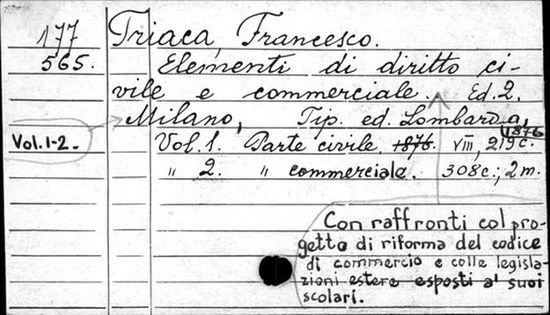 177
565.
Triaca, Francesco.
Elementi di diritto ci-
vile e commerciale. Ed. 2.
Milano, Tip. ed. Lombarda,
1876
Vol. 1-2.
Vol. 1. Parte civile, 1876. VIII, 219 c.
" 2. " commerciala. 308 c.; 2 m.
Con raffronti col pro-
getto di riforma del codice
di commercio e colle legisla-
zioni estere esposti a' suoi
scolari.